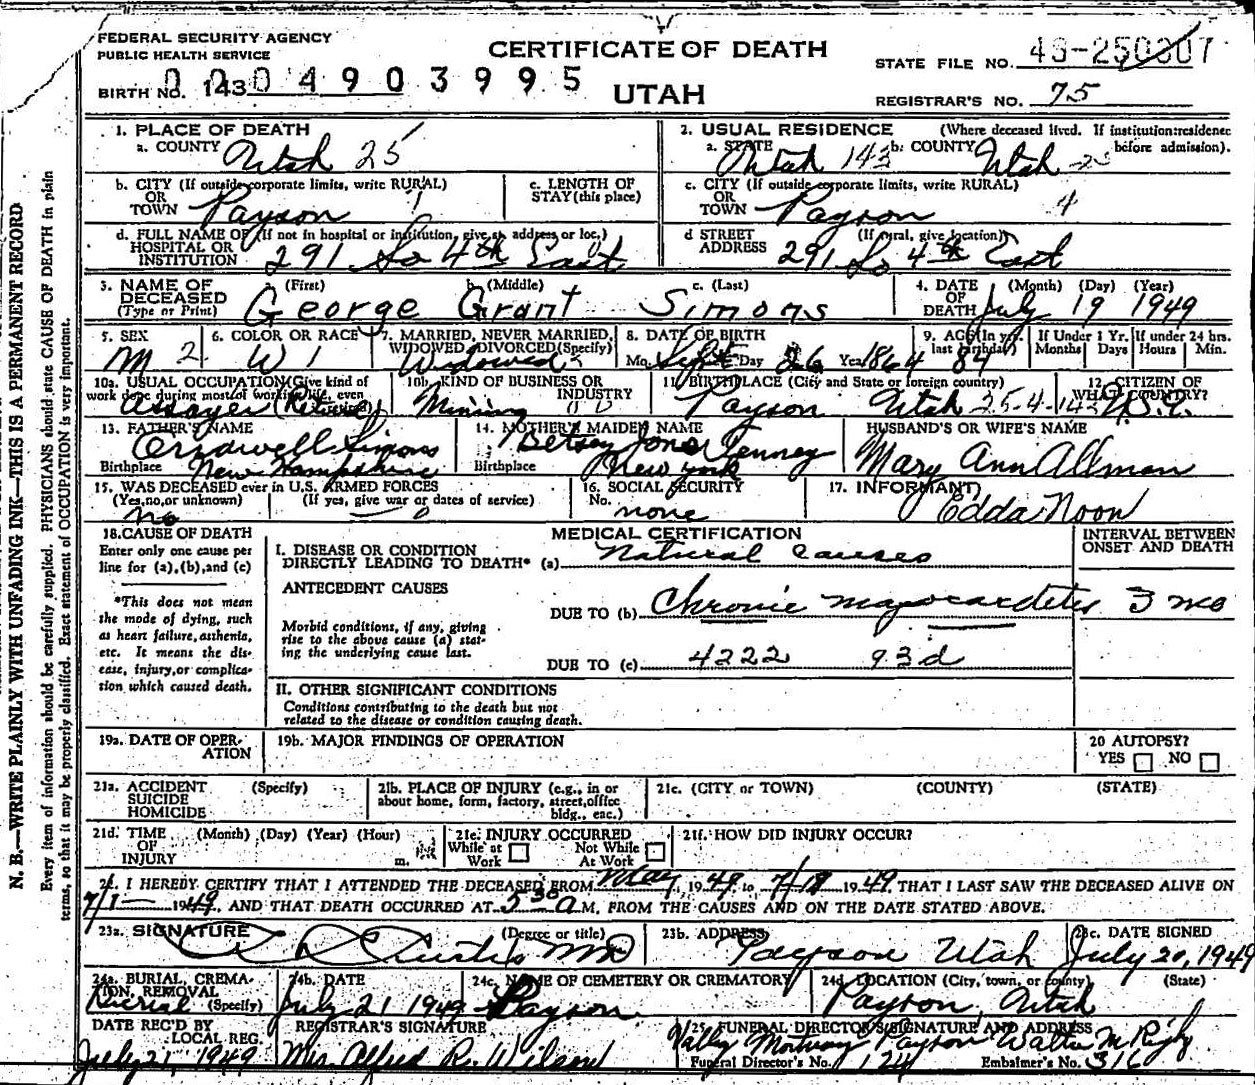 FEDERAL SECURITY AGENCY
PUBLIC HEALTH SERVICE
CERTIFICATE OF DEATH
UTAH
STATE FILE NO. 49-250007
BIRTH NO. 143 0 0 0 4 9 0 3 9 9 5
REGISTRAR'S NO. 75
N. B.—WRITE PLAINLY WITH UNFADING INK—THIS IS A PERMANENT RECORD
Every item of information should be carefully supplied. PHYSICIANS should state CAUSE OF DEATH in plain
terms, so that it may be properly classified. Exact statement of OCCUPATION is very important.
1. PLACE OF DEATH
a. COUNTY Utah 25
2. USUAL RESIDENCE (Where deceased lived. If institution: residence before admission).
a. STATE Utah 143 b. COUNTY Utah 25
b. CITY (If outside corporate limits, write RURAL)
OR
TOWN Payson 1
c. LENGTH OF
STAY (this place)
c. CITY (If outside corporate limits, write RURAL)
OR
TOWN Payson 4
d. FULL NAME OF (If not in hospital or institution, give st. address or loc.)
HOSPITAL OR
INSTITUTION 291 So 4th East
d STREET (If rural, give location)
ADDRESS 291 So 4th East
3. NAME OF
DECEASED
(Type or Print)
a. (First) b. (Middle) c. (Last)
George Grant Simons
4. DATE (Month) (Day) (Year)
OF
DEATH July 19 1949
5. SEX
M 2
6. COLOR OR RACE
W 1
7. MARRIED, NEVER MARRIED,
WIDOWED, DIVORCED (Specify)
Widowed 3
8. DATE OF BIRTH
Mo. Sept Day 26 Year 1864
9. AGE (In yr. last birthday) 84
If Under 1 Yr. Months Days
If under 24 hrs. Hours Min.
10a. USUAL OCCUPATION (Give kind of
work done during most of working life, even
Assayer (Retired)
10b. KIND OF BUSINESS OR
INDUSTRY
Mining
11. BIRTHPLACE (City and State or foreign country)
Payson Utah 25-4-143
12. CITIZEN OF
WHAT COUNTRY?
13. FATHER'S NAME
Orrawell Simons
Birthplace New Hampshire
14. MOTHER'S MAIDEN NAME
Betsey Jones Penney
Birthplace New York
HUSBAND'S OR WIFE'S NAME
Mary Ann Allman
15. WAS DECEASED ever in U.S. ARMED FORCES
(Yes, no, or unknown) (If yes, give war or dates of service)
no — 0
16. SOCIAL SECURITY
No. none
17. INFORMANT
Edda Noon
18. CAUSE OF DEATH
Enter only one cause per
line for (a), (b), and (c)
*This does not mean
the mode of dying, such
as heart failure, asthenia,
etc. It means the dis-
ease, injury, or complica-
tion which caused death.
MEDICAL CERTIFICATION
INTERVAL BETWEEN
ONSET AND DEATH
I. DISEASE OR CONDITION
DIRECTLY LEADING TO DEATH* (a) Natural causes
ANTECEDENT CAUSES
Morbid conditions, if any, giving
rise to the above cause (a) stat-
ing the underlying cause last.
DUE TO (b) Chronic myocardetes 3 mo
DUE TO (c) 4222 93d
II. OTHER SIGNIFICANT CONDITIONS
Conditions contributing to the death but not
related to the disease or condition causing death.
19a. DATE OF OPER-
ATION
19b. MAJOR FINDINGS OF OPERATION
20 AUTOPSY?
YES NO
21a. ACCIDENT (Specify)
SUICIDE
HOMICIDE
21b. PLACE OF INJURY (e.g., in or
about home, form, factory, street, office
bldg., etc.)
21c. (CITY or TOWN) (COUNTY) (STATE)
21d. TIME (Month) (Day) (Year) (Hour)
OF
INJURY m.
21e. INJURY OCCURRED
While at Work Not While At Work
21f. HOW DID INJURY OCCUR?
22. I HEREBY CERTIFY THAT I ATTENDED THE DECEASED FROM May, 1949, to 7/18 1949 THAT I LAST SAW THE DECEASED ALIVE ON
7/1— 1949, AND THAT DEATH OCCURRED AT 5 30 A M. FROM THE CAUSES AND ON THE DATE STATED ABOVE.
23a. SIGNATURE (Degree or title)
Curtis MD
23b. ADDRESS
Payson Utah
23c. DATE SIGNED
July 20, 1949
24a. BURIAL, CREMA-
TION, REMOVAL
Burial (Specify)
24b. DATE
July 21 1949
24c. NAME OF CEMETERY OR CREMATORY
Payson
24d. LOCATION (City, town, or county) (State)
Payson, Utah
DATE REC'D BY
LOCAL REG.
July 21, 1949
REGISTRAR'S SIGNATURE
Mrs. Alfred R. Wilson
25. FUNERAL DIRECTOR'S SIGNATURE AND ADDRESS
Valley Mortuary Payson Walter M Rigby
Funeral Director's No. 124 Embalmer's No. 316